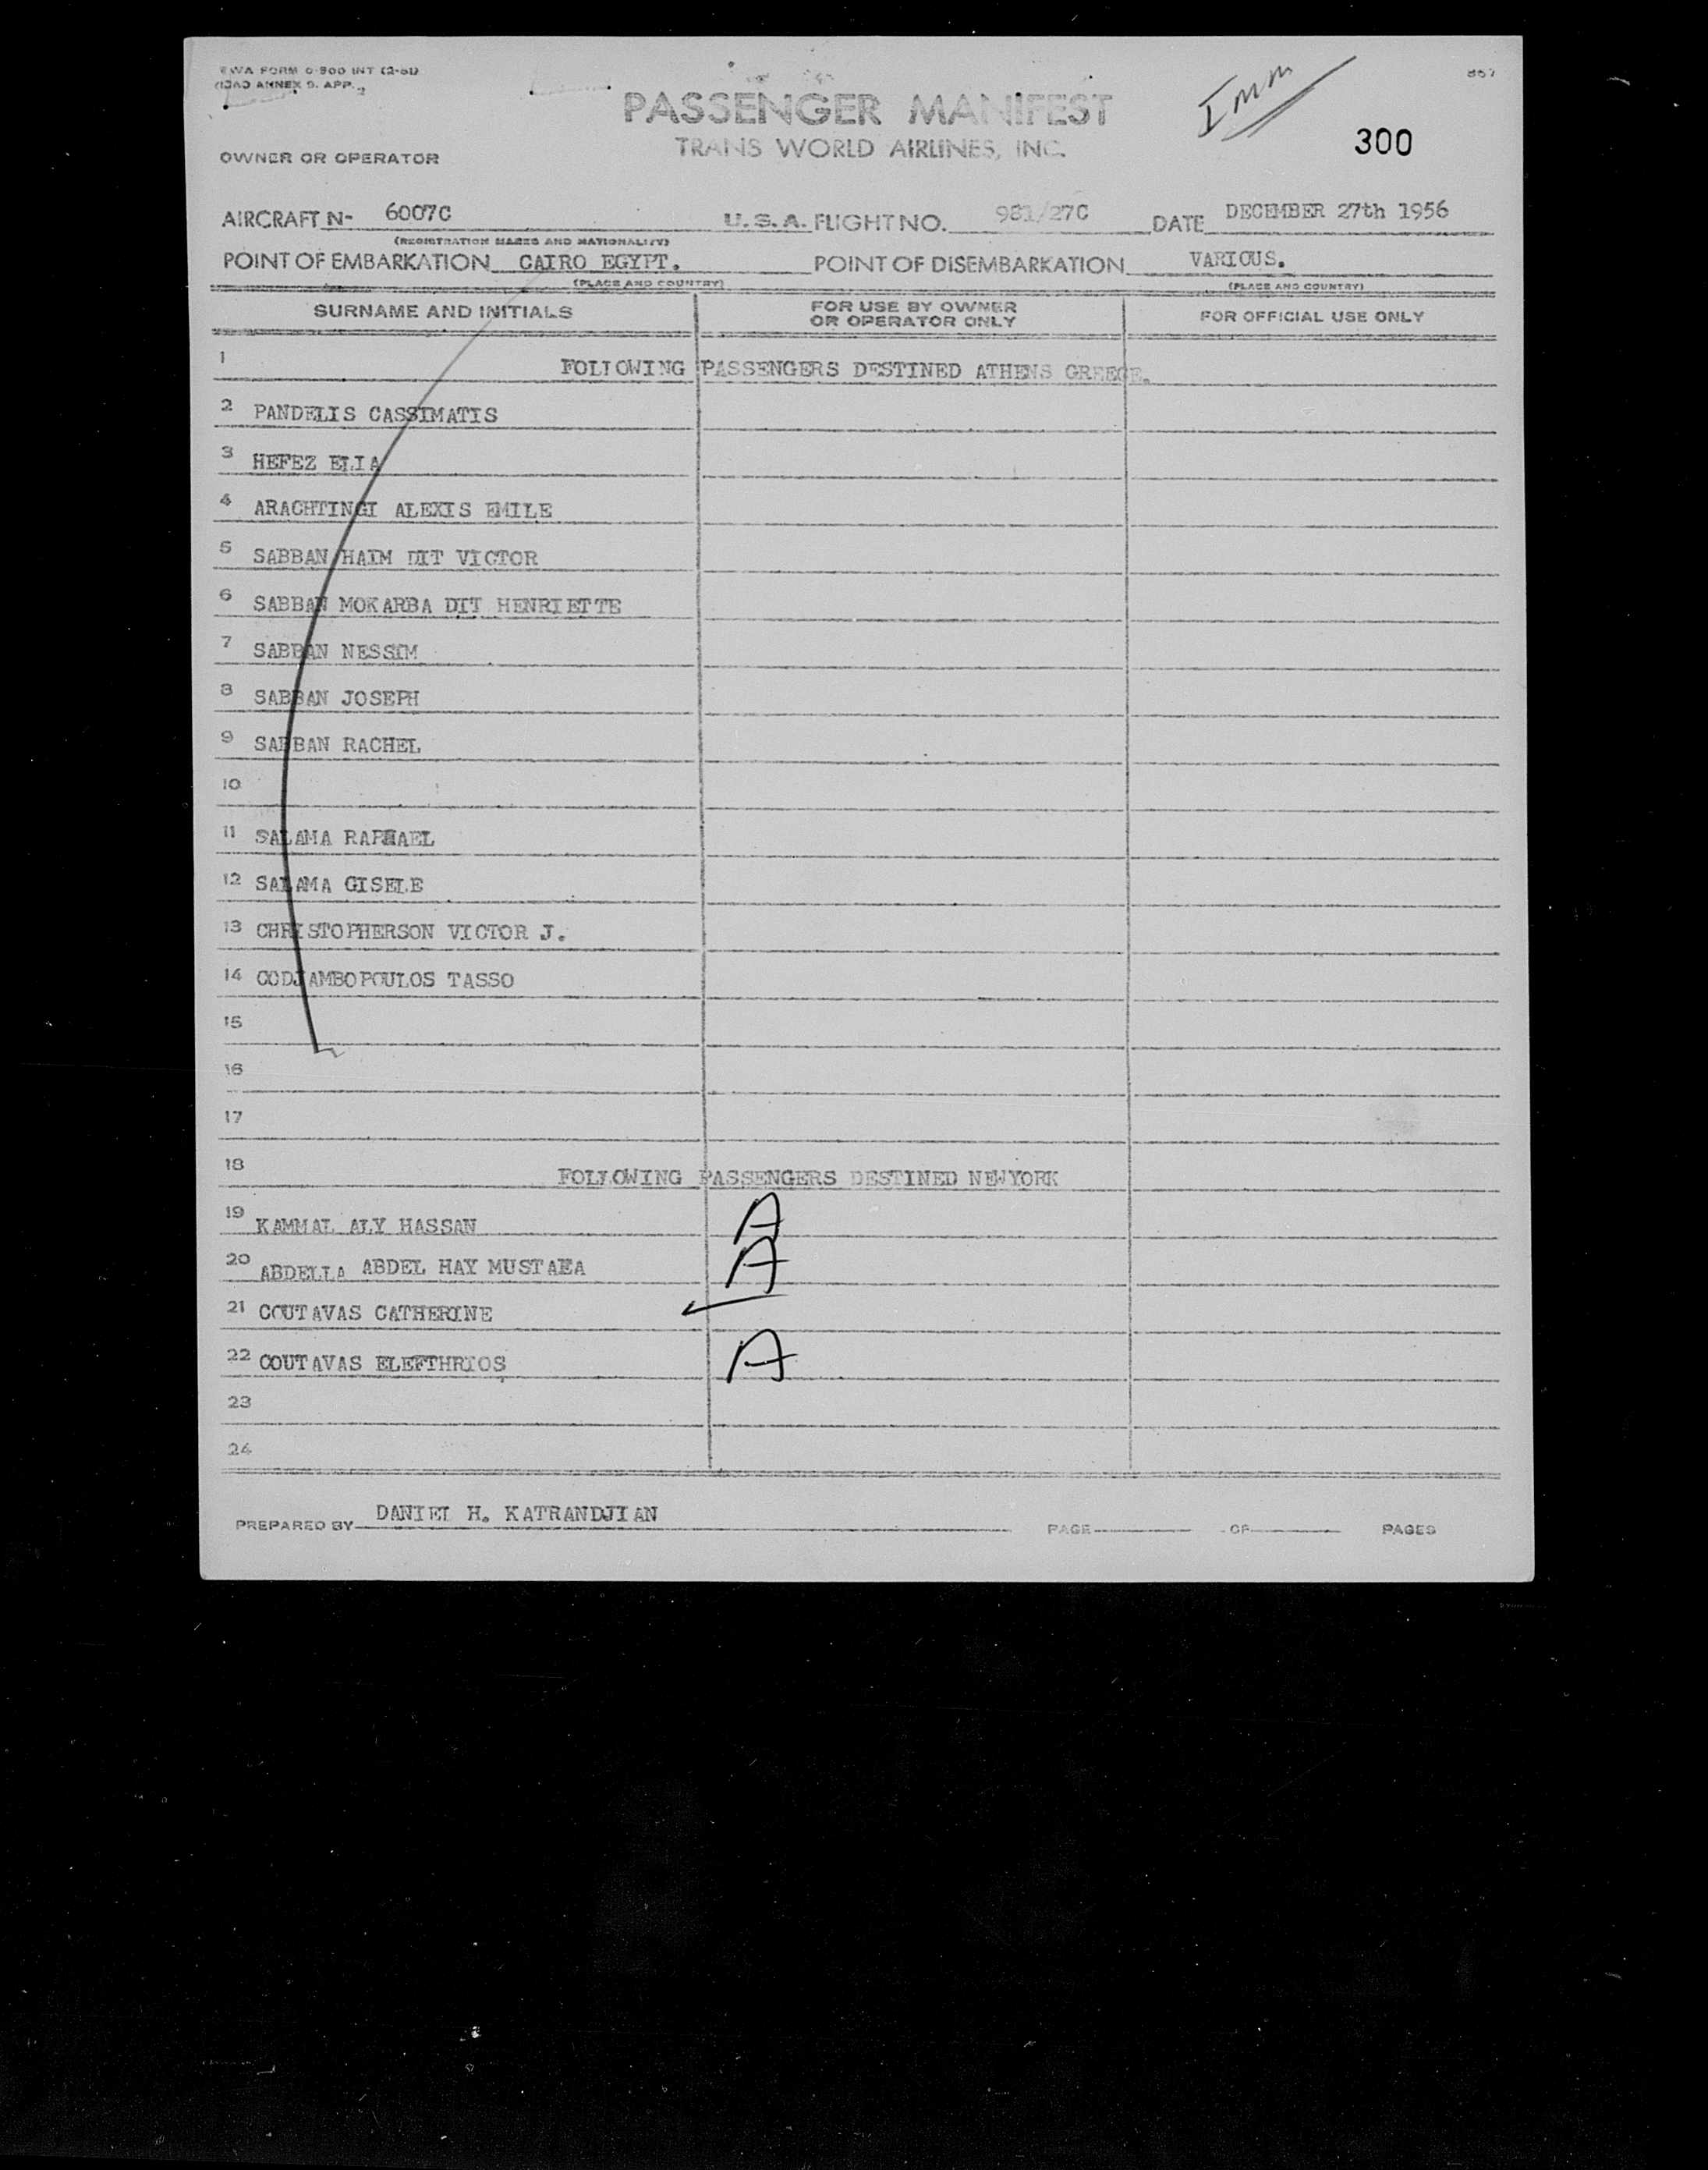 TWA FORM 0-900 INT (2-51)
(ICAO ANNEX 9. APP.
867
Imm
PASSENGER MANIFEST
300
TRANS WORLD AIRLINES, INC.
OWNER OR OPERATOR
AIRCRAFT N- 6007C U.S.A. FLIGHT NO. 981/27C DATE DECEMBER 27th 1956
(REGISTRATION MARKS AND NATIONALITY)
POINT OF EMBARKATION CAIRO EGYPT. POINT OF DISEMBARKATION VARIOUS.
(PLACE AND COUNTRY) (PLACE AND COUNTRY)
SURNAME AND INITIALS FOR USE BY OWNER OR OPERATOR ONLY FOR OFFICIAL USE ONLY
1 FOLLOWING PASSENGERS DESTINED ATHENS GREECE.
2 PANDELIS CASSIMATIS
3 HEFEZ ELIA
4 ARACHTINGI ALEXIS EMILE
5 SABBAN HAIM DIT VICTOR
6 SABBAN MOKARBA DIT HENRIETTE
7 SABBAN NESSIM
8 SABBAN JOSEPH
9 SABBAN RACHEL
10
11 SALAMA RAPHAEL
12 SALAMA GISELE
13 CHRISTOPHERSON VICTOR J.
14 CODJAMBOPOULOS TASSO
15
16
17
18 FOLLOWING PASSENGERS DESTINED NEWYORK
19 KAMMAL ALY HASSAN A
20 ABDELLA ABDEL HAY MUSTAFA A
21 COUTAVAS CATHERINE
22 COUTAVAS ELEFTHRIOS A
23
24
PREPARED BY DANIEL H. KATRANDJIAN PAGE OF PAGES